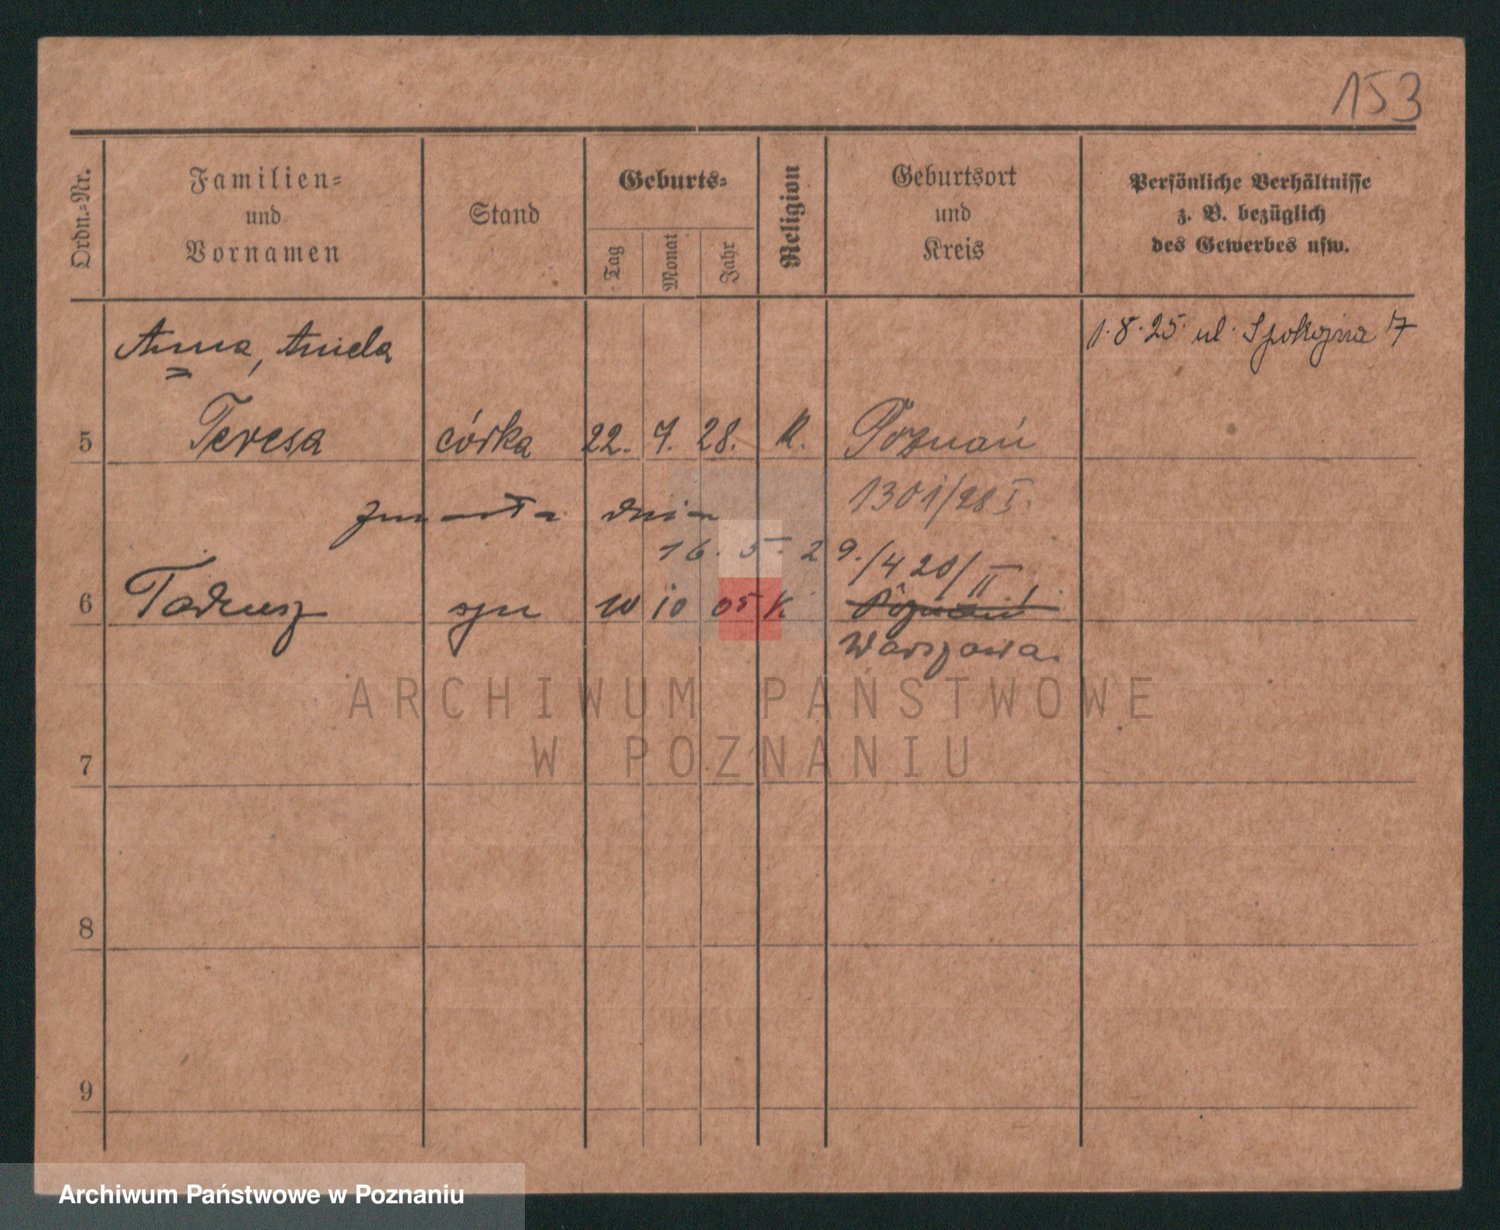 153
Ordn.-Nr.
Familien-
und
Vornamen
Stand
Geburts-
Tag
Monat
Jahr
Religion
Geburtsort
und
Kreis
Persönliche Verhältnisse
z. B. bezüglich
des Gewerbes usw.
Anna, Aniela
1.8.25. ul. Spokojna 7
5 Teresa córka 22. 7. 28. K. Poznań
1301/28 I.
zmarła dnia
16. 5. 29. /420/II.
6 Tadeusz syn 10 10 05 K Poznań
Warszawa.
ARCHIWUM PAŃSTWOWE
W POZNANIU
7
8
9
Archiwum Państwowe w Poznaniu